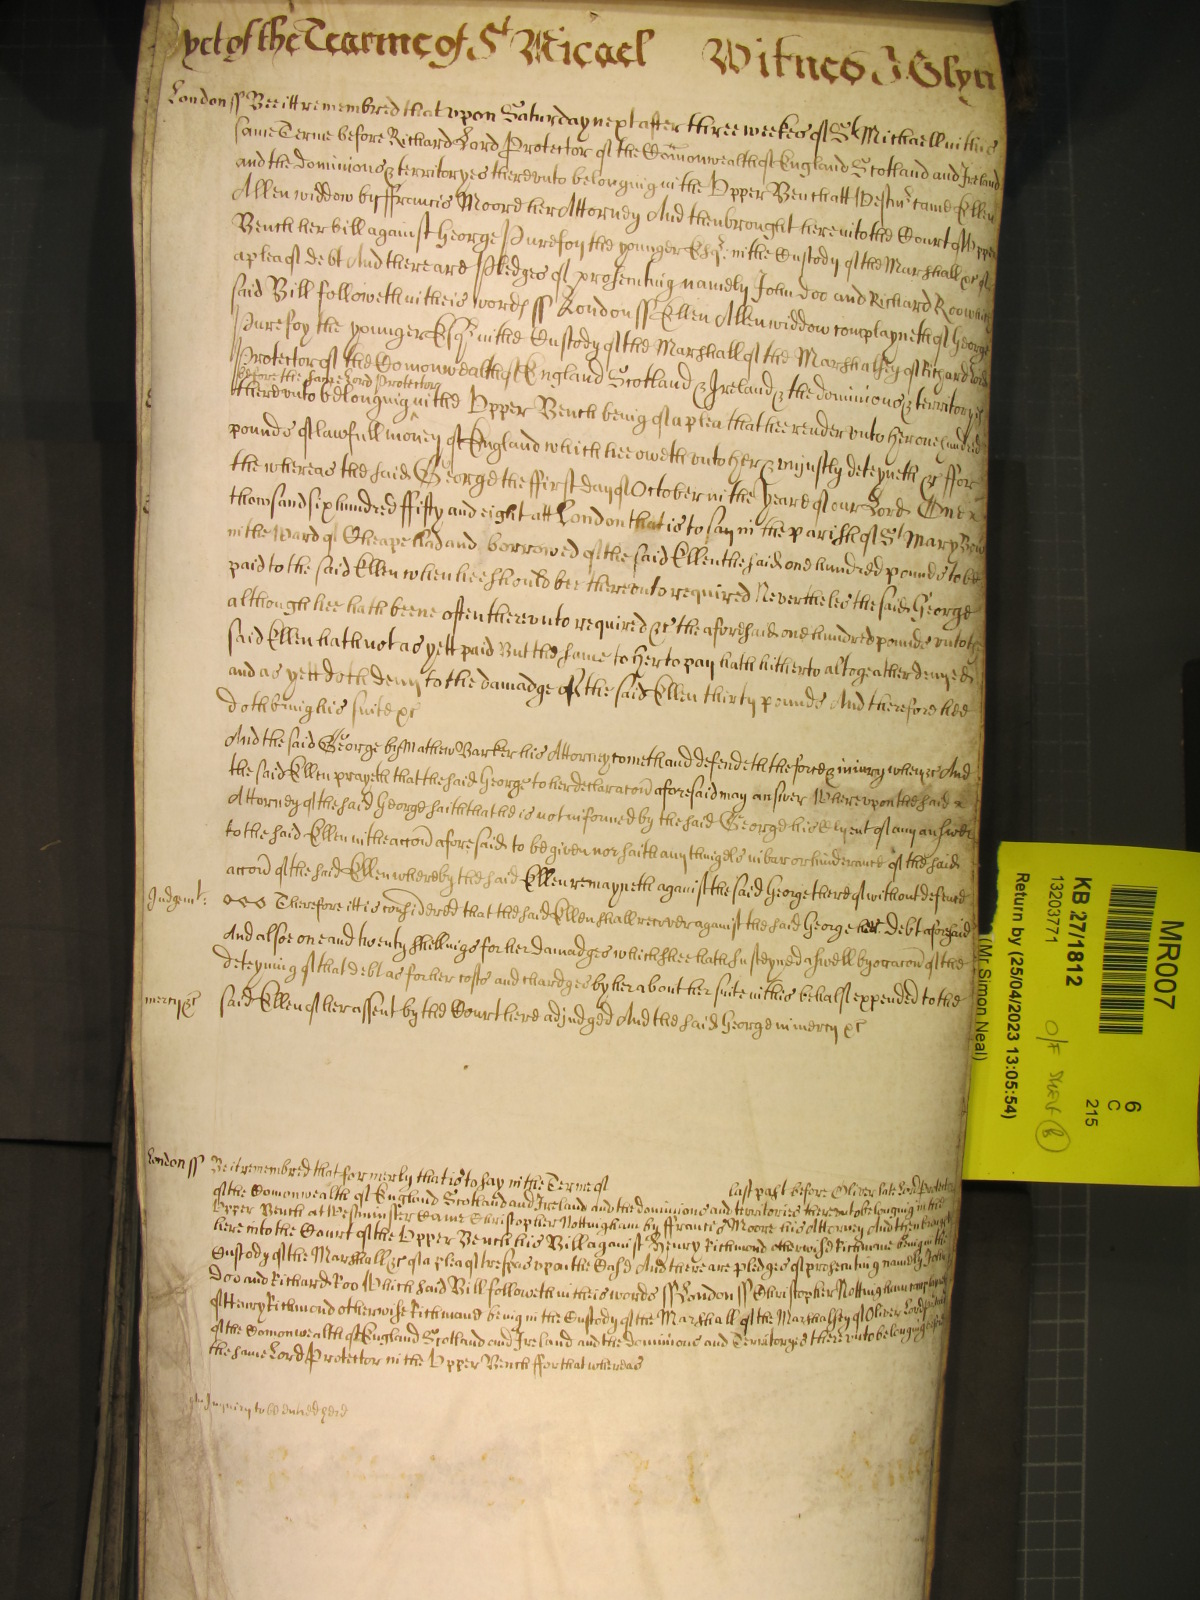 yet of the Tearme of St Micael Witnes J Glyn
London ss Bee itt remembred that vpon Saturday next after three weekes of St Michaell in this
same Terme before Richard Lord Protector of the Comonwealth of England Scotland and Ireland
and the dominions & territoryes therevnto belonging in the Vpper Bench att Westmr came Ellen
Allen widdow by ffrancis Moore her Attorney And then brought here into the Court of Vpper
Bench her bill against George Purefoy the younger Esqr. in the Custody of the Marshall &c of
a plea of debt And there are Pledges of prosecuting namely John Doo and Richard Roo which
said Bill followeth in theis words ss London ss Ellen Allen widdow complayneth of George
Purefoy the younger Esqr in the Custody of the Marshall of the Marshalsey of Richard Lord
Protector of the Comonwealth of England Scotland & Ireland & the dominions & territoryes
before the same Lord Protector
therevnto belonging in the Vpper Bench being of a plea that hee render vnto her one hundred
pounds of lawfull money of England which hee oweth vnto her & vniustly deteyneth &c ffor
the whereas the said George the ffirst day of October in the yeare of our Lord One
thowsand six hundred ffifty and eight att London that is to say in the parish of St Mary Bow
in the Ward of Cheape had and borrowed of the said Ellen the said one hundred pounds to be
paid to the said Ellen when hee should bee therevnto required Nevertheles the said George
although hee hath beene often therevnto required &c the aforesaid one hundred pounds vnto the
said Ellen hath not as yett paid But the same to her to pay hath hitherto altogeather denyed
and as yett doth deny to the damadge of the said Ellen thirty pounds And therefore hee
doth bring his suite &c
And the said George by Mathew Barker his Attorney cometh and defendeth the force & iniury when &c And
the said Ellen prayeth that the said George to her declaracon aforesaid may answer Wherevpon the said
Attorney of the said George saith that he is not informed by the said George his Clyent of any answer
to the said Ellen in the accon aforesaid to be given nor saith any thinge in bar or hinderance of the said
accon of the said Ellen whereby the said Ellen remayneth against the said George thereof without defence
Judgmt:
Therefore itt is considered that the said Ellen shall recover against the said George her debt aforesaid
And alsoe one and twenty shillings for her damadges which shee hath susteyned aswell by occacon of the
deteyning of that debt as for her costs and chardges by her about her suite in this behalf expended to the
mercy &c
said Ellen of her assent by the Court here adjudged And the said George in mercy &c
London ss Be it remembred that formerly that is to say in the Terme of last past before Oliver late Lord Protector
of the Comonwealth of England Scotland and Ireland and the dominions and territories therevnto belonging in the
Vpper Bench at Westminster Came Christopher Nottingham by ffrancis Moore his Attorney And then brought
here into the Court of the Vpper Bench his Bill against Henry Richmond otherwise Richmane being in the
Custody of the Marshall &c of a plea of trespas vpon the Case And there are pledges of prosecuting namely John
Doo and Richard Roo Which said Bill followeth in theis words ss London ss Christopher Nottingham complayneth
of Henry Richmond otherwise Richmane being in the Custody of the Marshall of the Marshalsey of Oliver Lord Protector
of the Comonwealth of England Scotland and Ireland and the dominions and Territoryes therevnto belonging before
the same Lord Protector in the Vpper Bench ffor that whereas
MR007
KB 27/1812
13203771
Return by (25/04/2023 13:05:54)
(Mr Simon Neal)
6
C
215
O/F
8